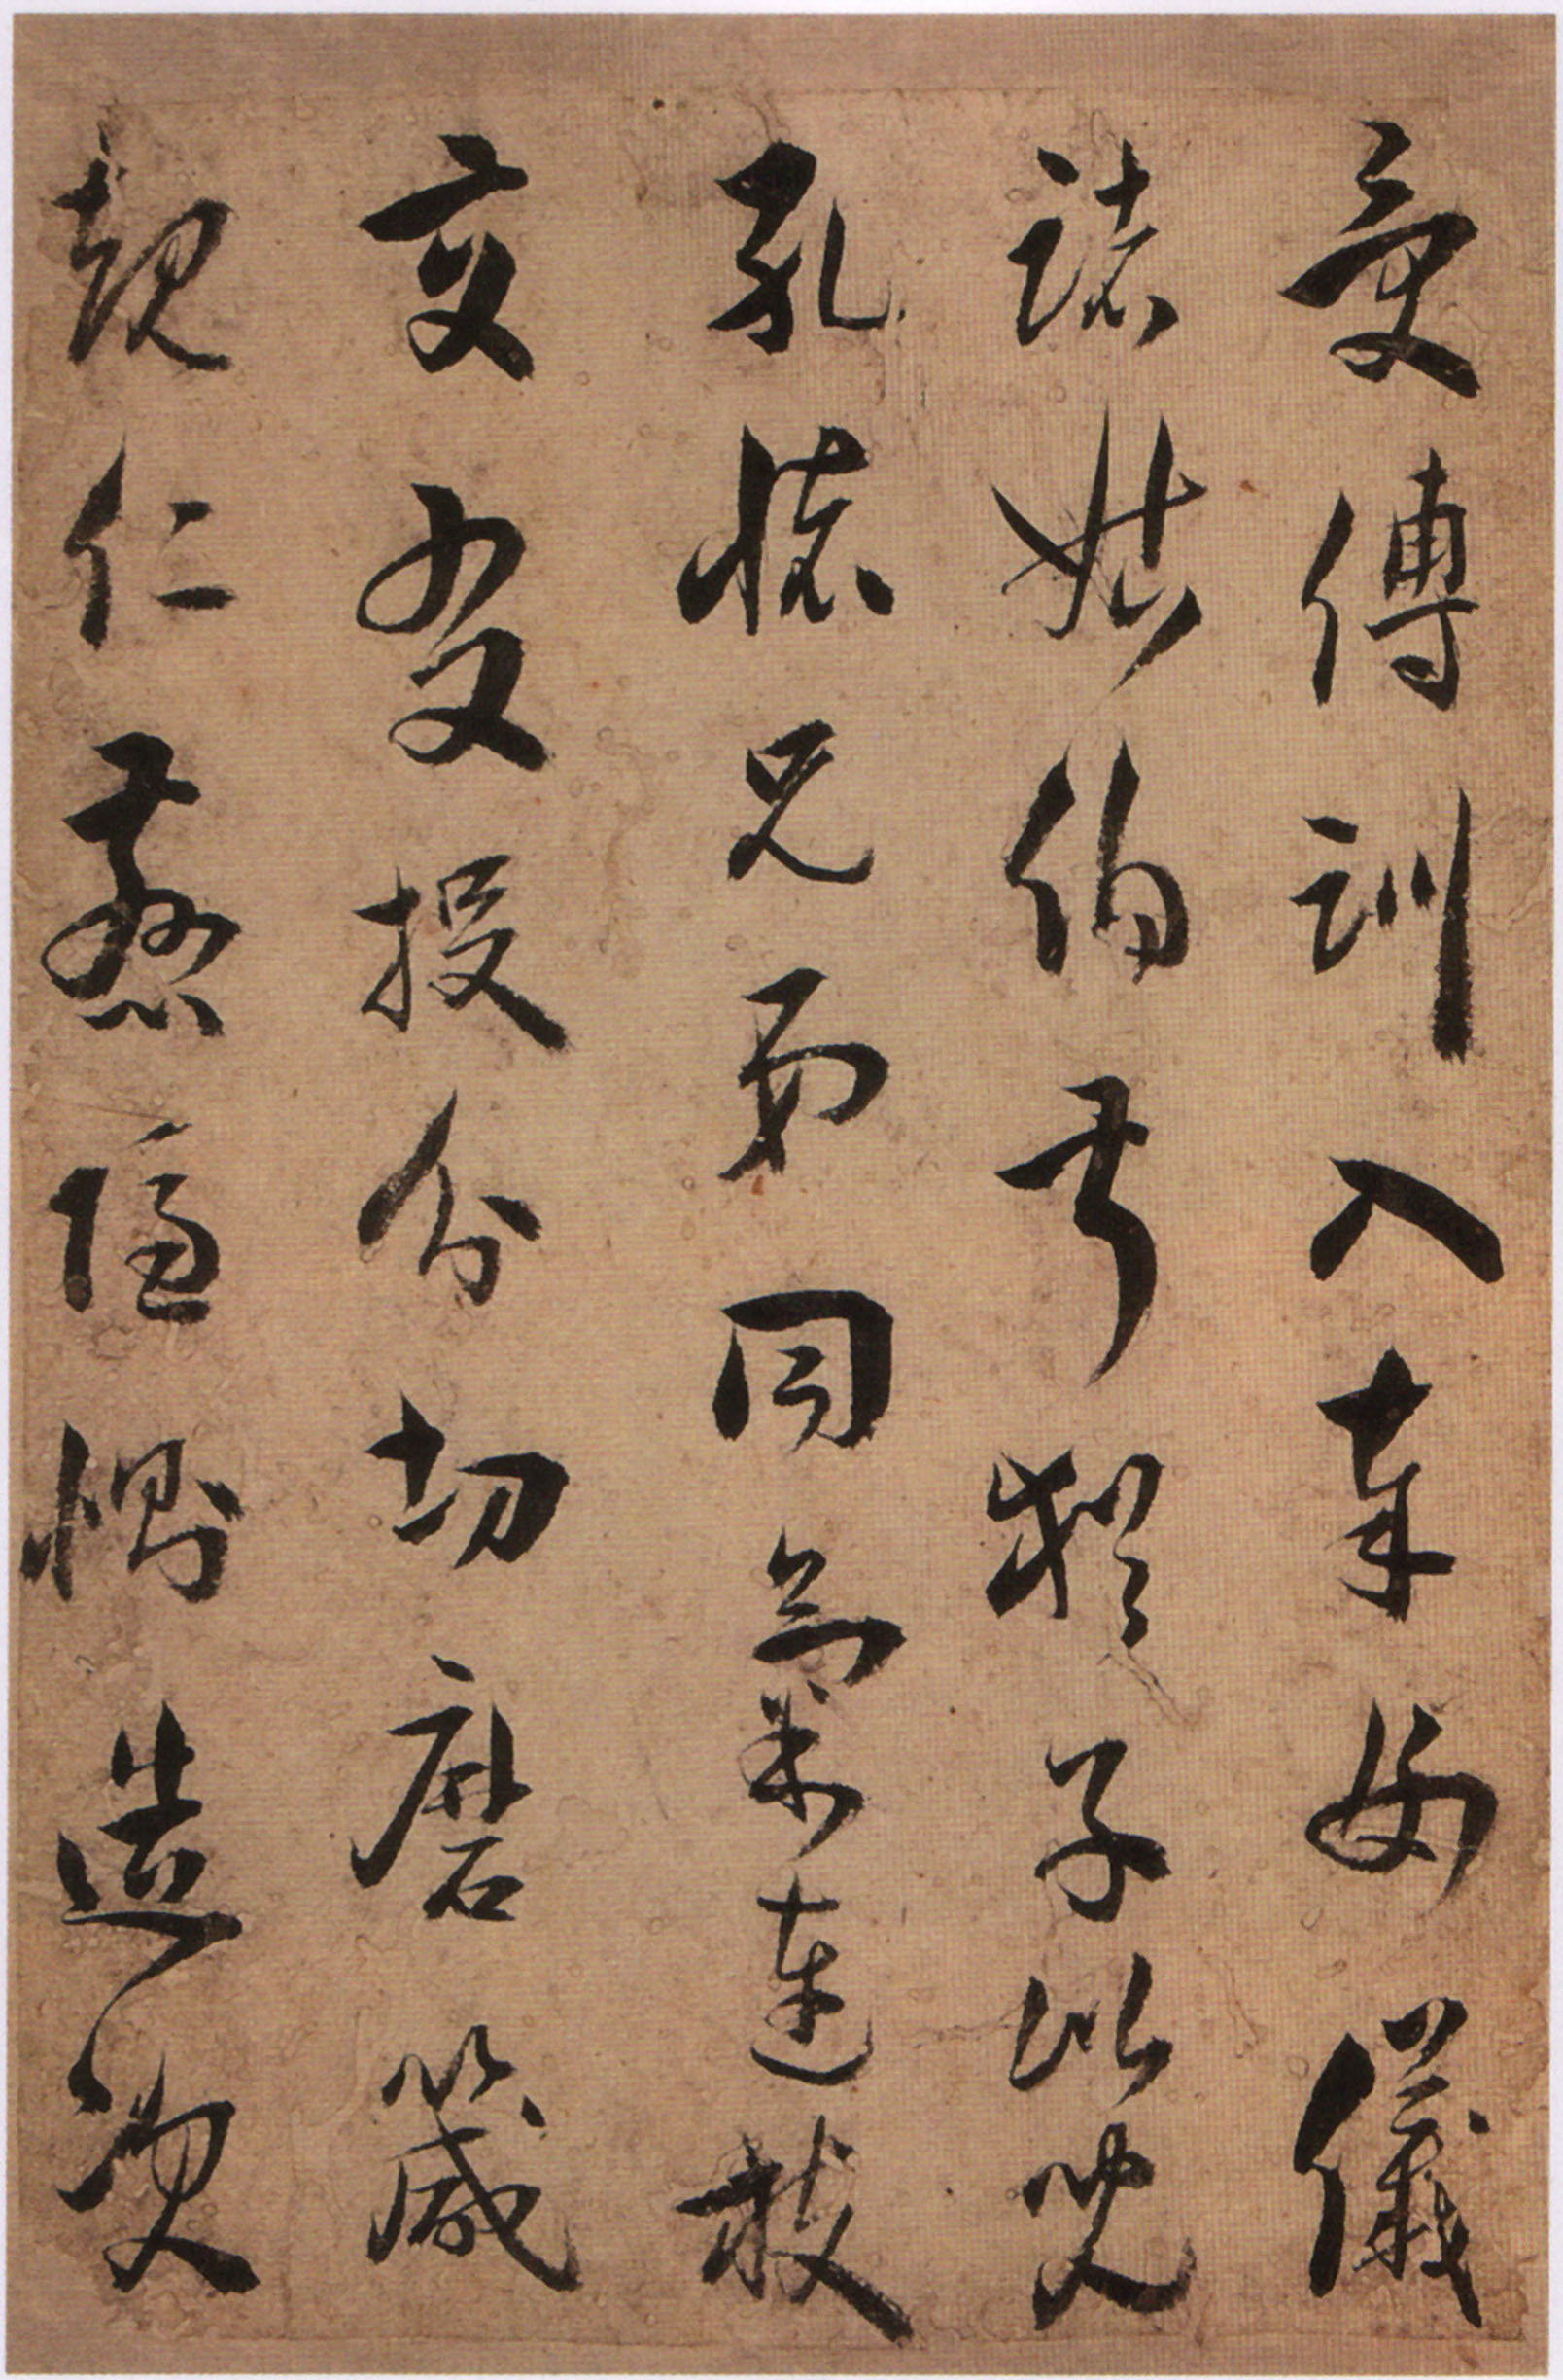 受傅訓入奉母儀
諸姑伯叔猶子比兒
孔懷兄弟同氣連枝
交友投分切磨箴
規仁慈隱惻造次